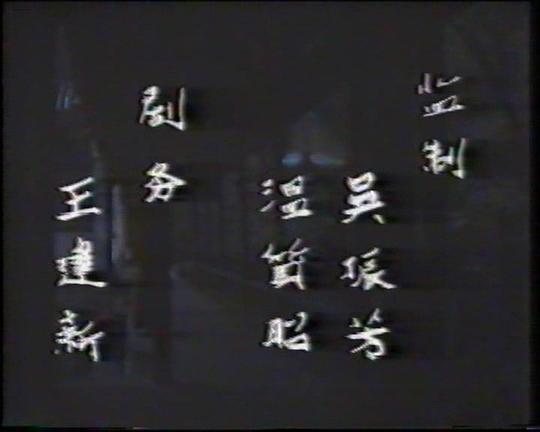 监制
吴振芳
温筒昭
剧务
王建新